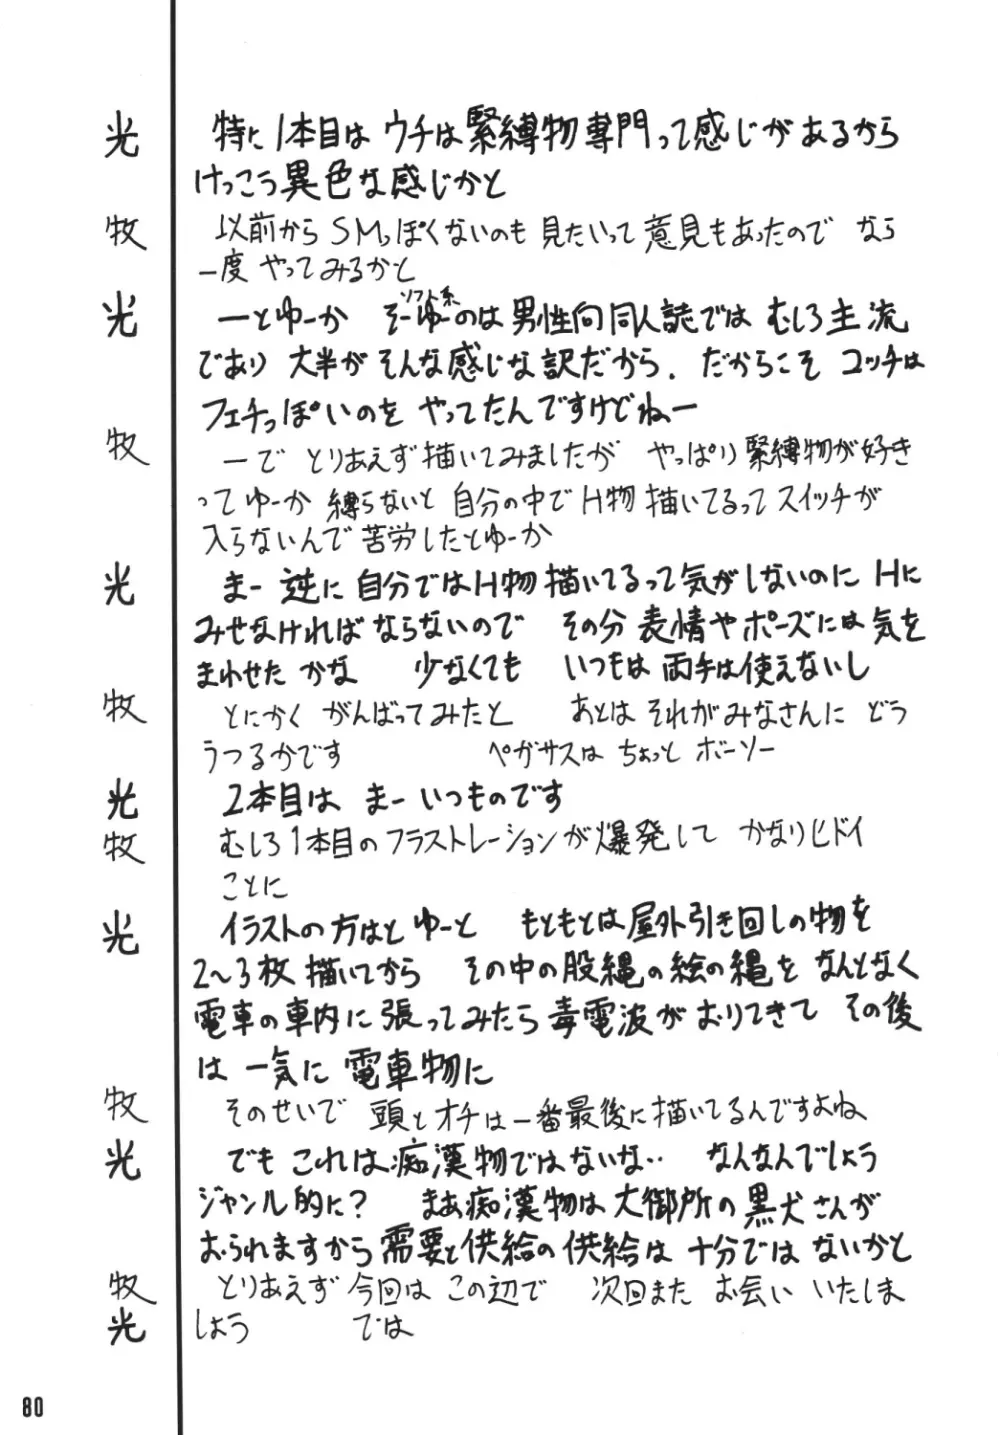 光 特に1本目は ウチは緊縛物専門って感じがあるから
けっこう異色な感じかと
牧 以前からSMっぽくないのも 見たいって意見もあったので なら
一度 やってみるかと
ソフト系
光 ーとゆーか そーゆーのは男性向同人誌では むしろ主流
であり 大半が そんな感じな訳だから. だからこそ コッチは
フェチっぽいのを やってたんですけどねー
牧 ーで とりあえず描いてみましたが やっぱり緊縛物が好き
ってゆーか 縛らないと 自分の中でH物 描いてるってスイッチが
入らないんで苦労したとゆーか
光 まー 逆に自分ではH物描いてるって気がしないのに Hに
みせなければならないので その分 表情やポーズには気を
まわせた かな 少なくても いつもは両手は使えないし
牧 とにかく がんばってみたと あとは それがみなさんに どう
うつるかです ペガサスは ちょっと ボーソー
光 2本目は まー いつものです
牧 むしろ1本目のフラストレーションが爆発して かなりヒドイ
ことに
光 イラストの方はと ゆーと もともとは屋外引き回しの物を
2〜3枚 描いてから その中の股縄の絵の縄を なんとなく
電車の車内に張ってみたら毒電波がおりてきて その後
は 一気に 電車物に
牧 そのせいで 頭とオチは一番最後に描いてるんですよね
光 でも これは痴漢物ではないな‥ なんなんでしょう
ジャンル的に? まあ痴漢物は大御所の黒犬さんが
おられますから需要と供給の供給は 十分では ないかと
牧 とりあえず 今回は この辺で 次回また お会い いたしま
光 しょう では
80